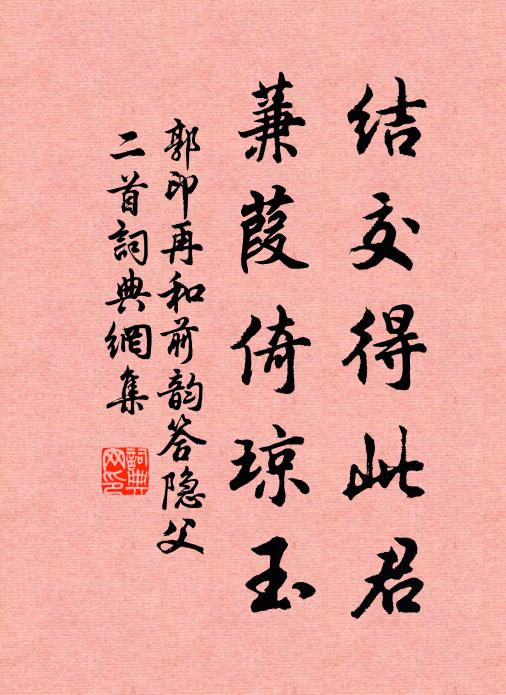 结交得此君
蒹葭倚琼玉
郭印再和前韵答隐父
二首詞典網集
詞典网印